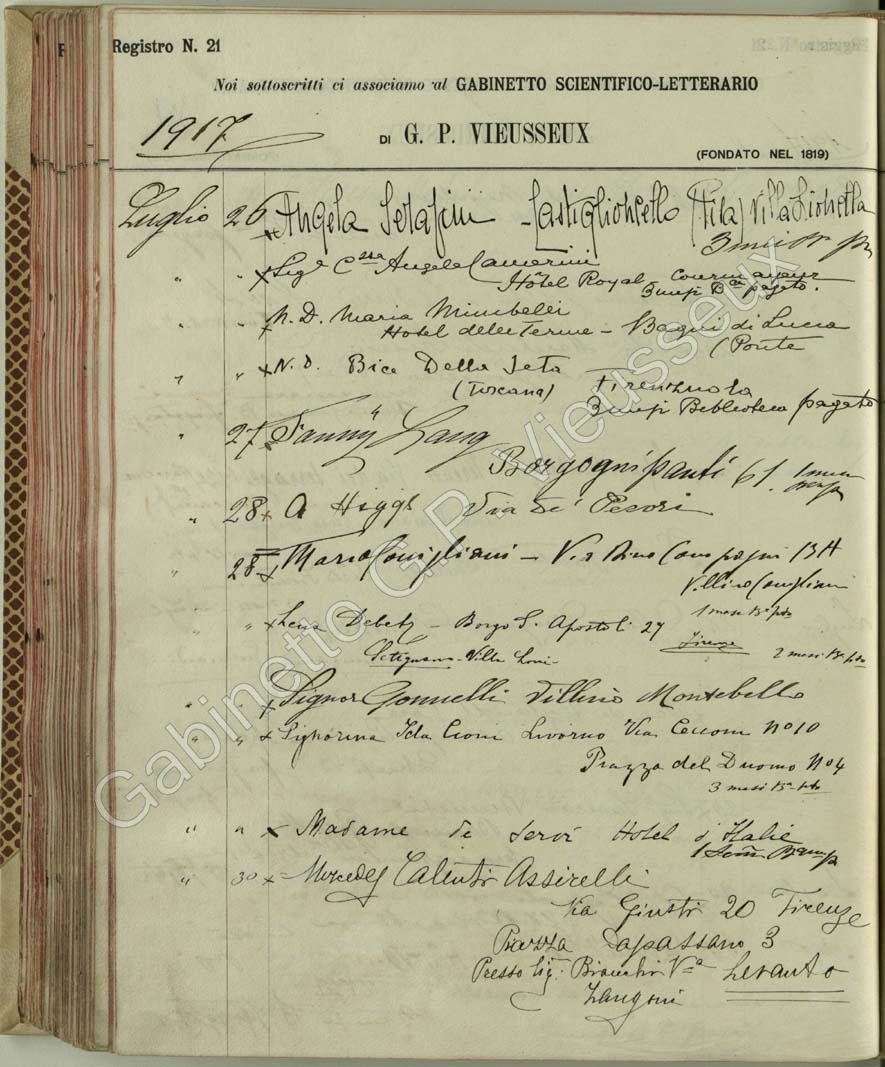 Registro N. 21
Noi sottoscritti ci associamo al GABINETTO SCIENTIFICO-LETTERARIO
1917
DI G. P. VIEUSSEUX
(FONDATO NEL 1819)
Luglio 26 x Angela Serafini - Castiglioncello (Pisa) Villa
3 mesi
" " x Sig.a C.ssa Angela Camerini
Hôtel Royal Courmayeur
3 pagato.
" " x N. D. Maria Mimbelli
Hotel delle Terme - Bagni di Lucca
(Ponte
" " x N. D. Bice Della Seta
(Toscana) Firenzuola
3 Biblioteca pagato
" 27 x Fanny Lang
Borgognissanti 61.
" 28 x A Higgs Via de' Pecori
" 28 x Mario Conigliani - Via Dino Compagni 13A
Villino Conigliani
1 mese
" " x Lena - Borgo S. Apostoli 27
Firenze
Settignano - Villa
2 mesi
" " x Signor Gonnelli Villino Montebello
" " x Signorina Ida Cioni Livorno Via No 10
Piazza del Duomo No 4
3 mesi
" " x Madame de Servi Hotel d'Italie
" 30 x Mercedes Talenti Assirelli
Via Giusti 20 Firenze
Piazza 3
Presso Sig. Levanto
Zangoni
Gabinetto G.P. Vieusseux